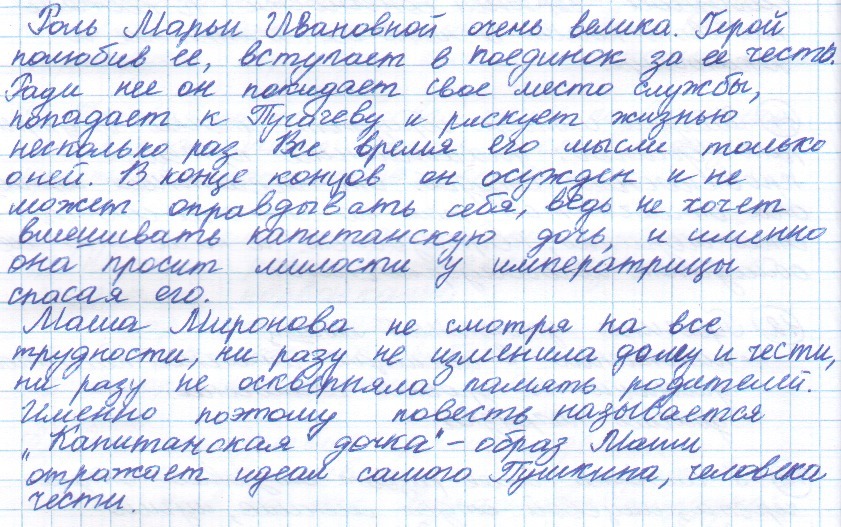 Роль Марьи Ивановной очень велика. Герой
полюбив ее, вступает в поединок за ее честь.
Ради нее он покидает свое место службы,
попадает к Пугачеву и рискует жизнью
несколько раз Все время его мысли только
оней. В конце концов он осужден и не
может оправдывать себя, ведь не хочет
вмешивать капитанскую дочь, и именно
она просит милости у императрицы
спасая его.
Маша Миронова не смотря на все
трудности, ни разу не изменила долгу и чести,
ни разу не оскверняла память родителей.
Именно поэтому повесть называется
"Капитанская дочка" – образ Маши
отражает идеал самого Пушкина, человека
чести.